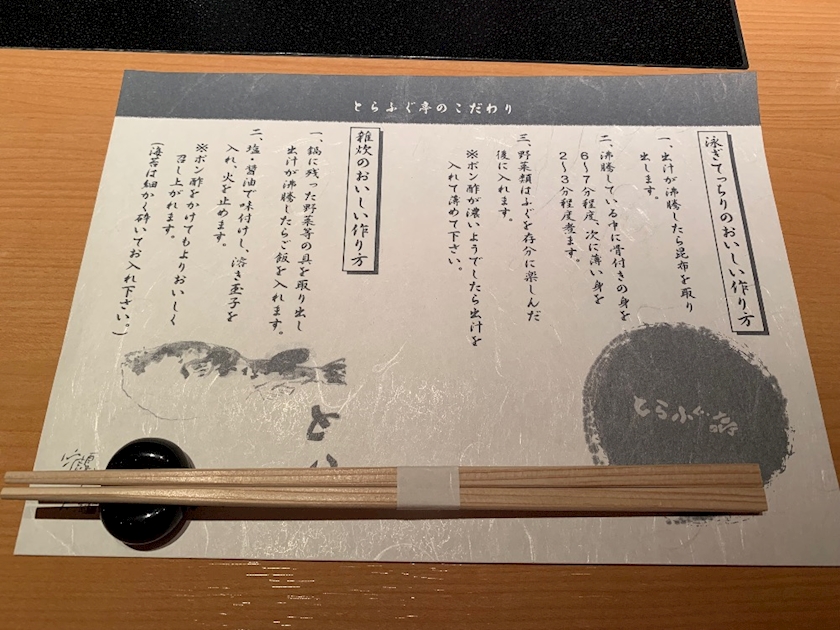 とらふぐ亭のこだわり
泳ぎてっちりのおいしい作り方
一、出汁が沸騰したら昆布を取り
出します。
二、沸騰している中に骨付きの身を
6〜7分程度、次に薄い身を
2〜3分程度煮ます。
三、野菜類はふぐを存分に楽しんだ
後に入れます。
※ポン酢が濃いようでしたら出汁を
入れて薄めて下さい。
雑炊のおいしい作り方
一、鍋に残った野菜等の具を取り出し
出汁が沸騰したらご飯を入れます。
二、塩・醤油で味付けし、溶き玉子を
入れ、火を止めます。
※ポン酢をかけてもよりおいしく
召し上がれます。
(海苔は細かく砕いてお入れ下さい。)
とらふぐ亭
と